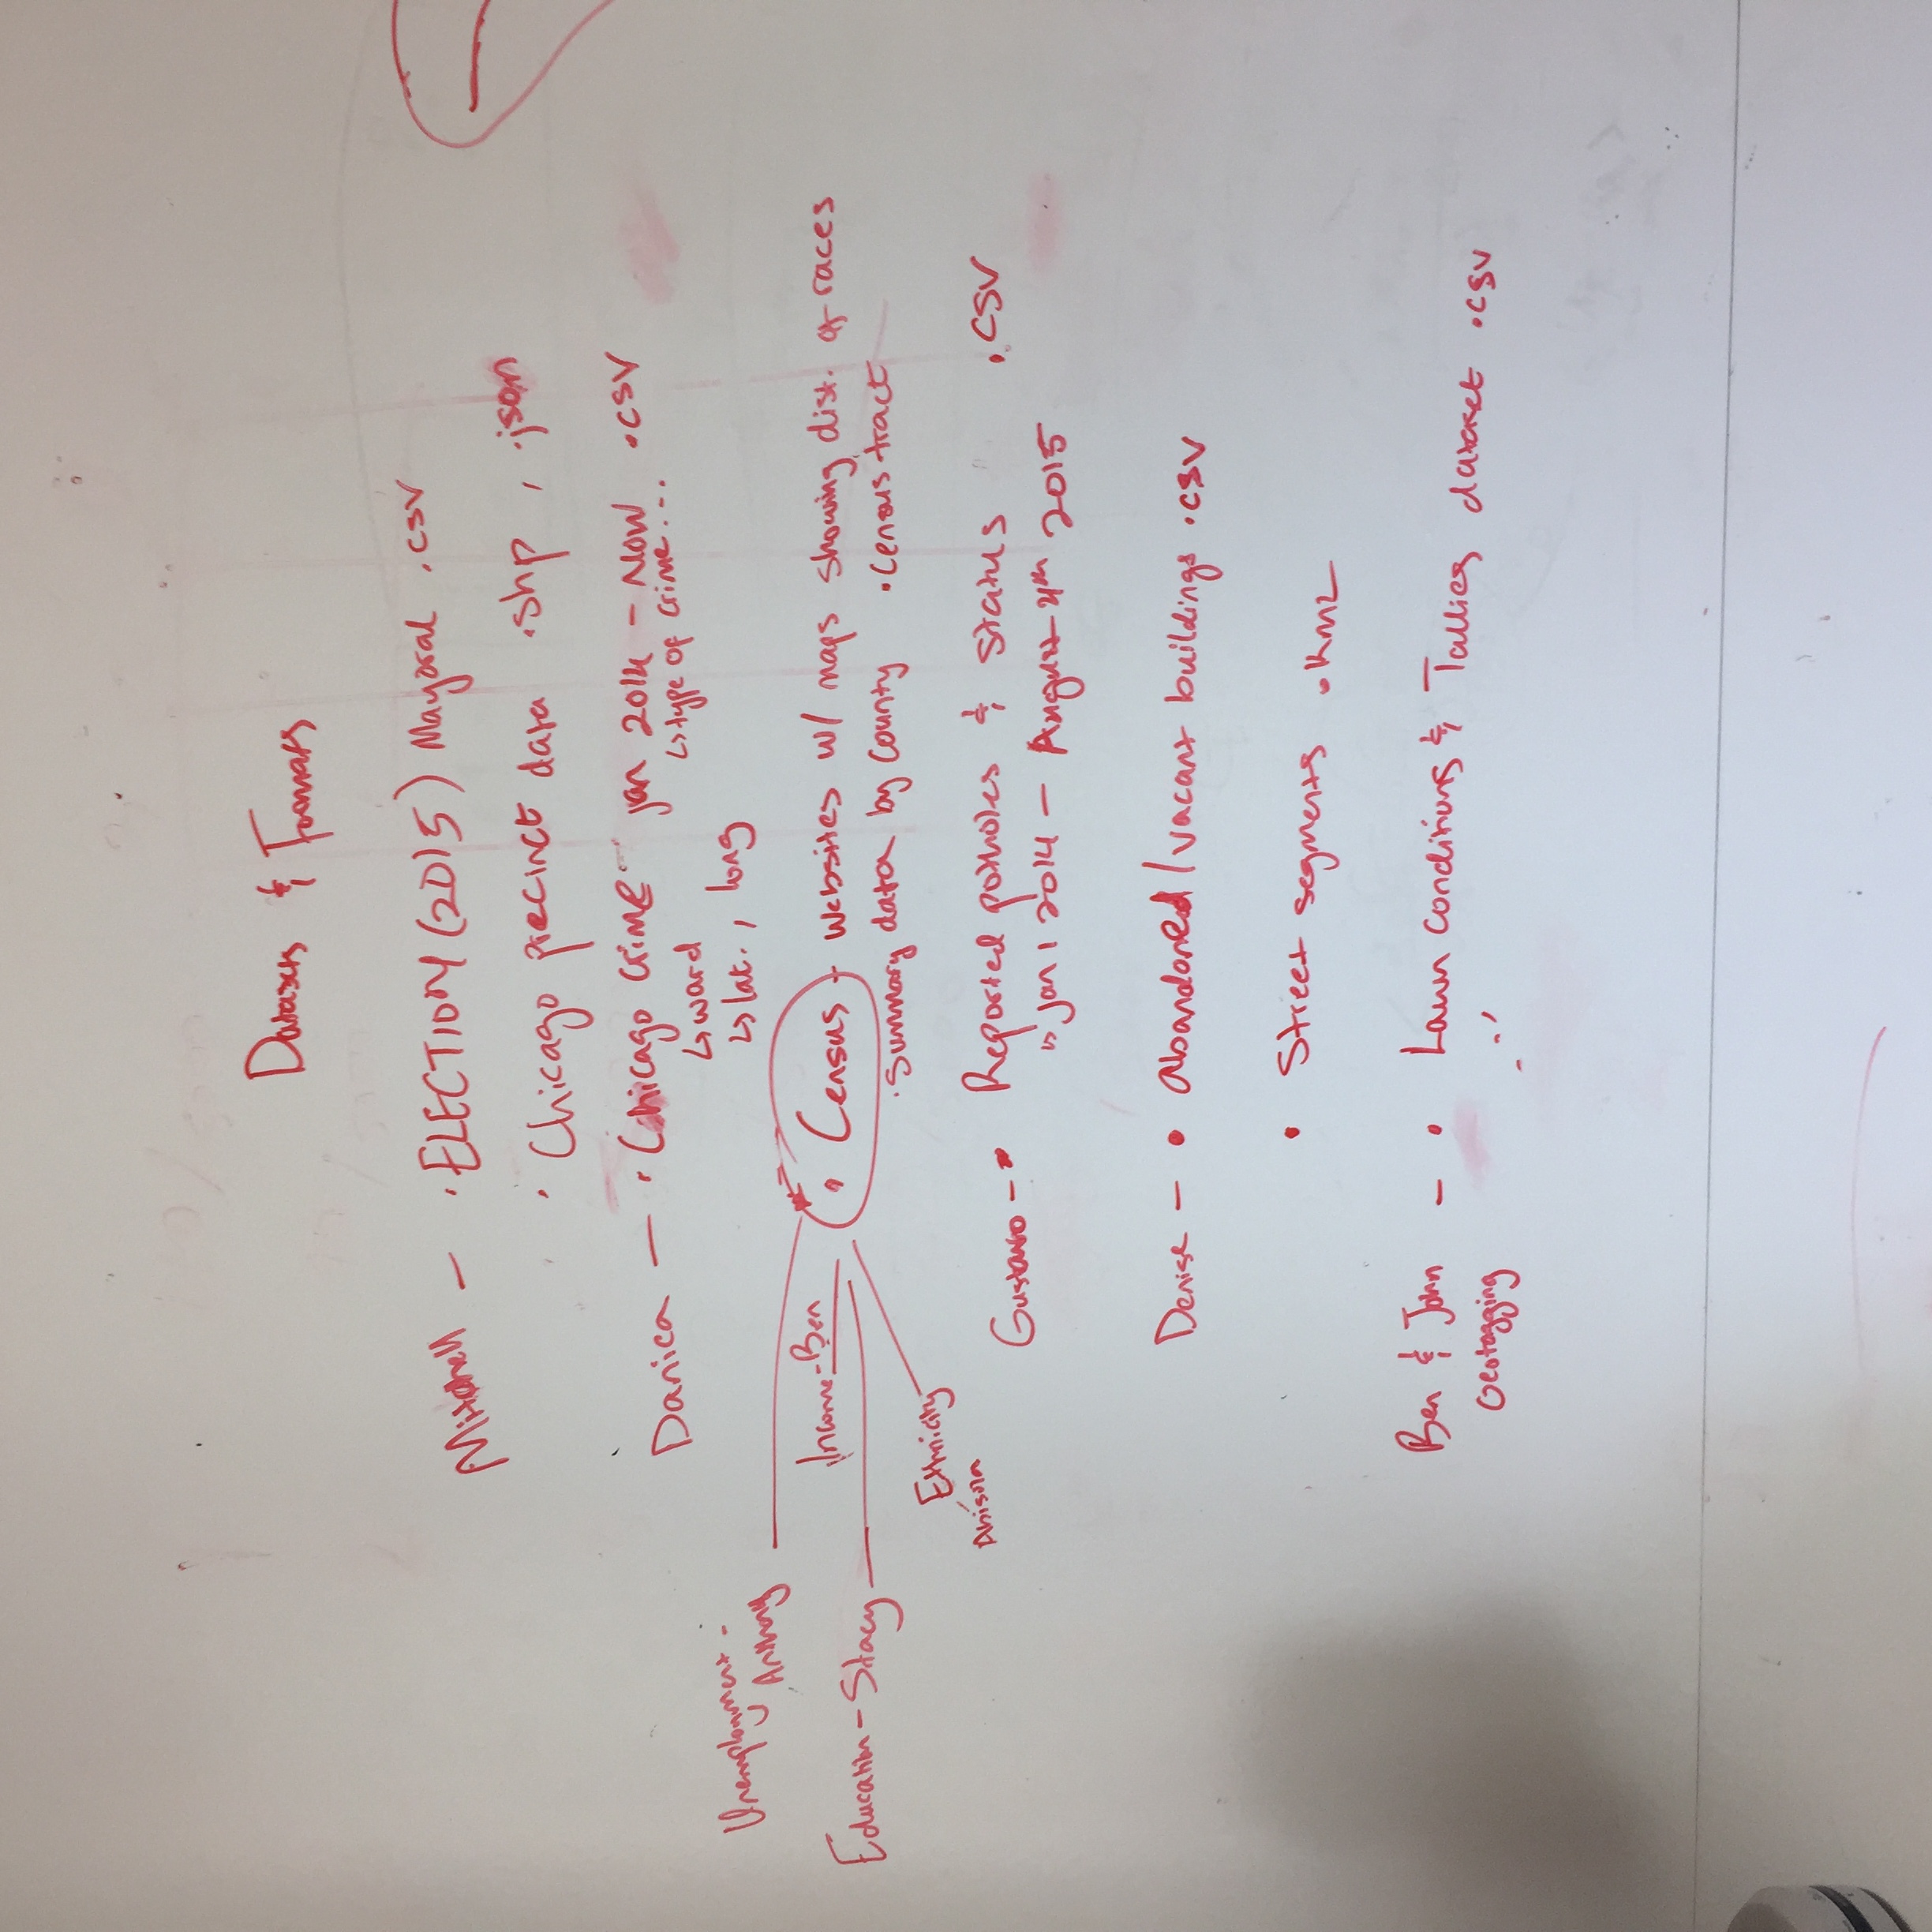 Datasets & Formats
Mitchell — • ELECTION (2015) Mayoral .csv
• Chicago precinct data .shp , .json
Danica — • Chicago Crime - jan 2014 - NOW .csv
↳ ward ↳ type of crime...
↳ lat. , long
Unemployment -
Anthony
Income - Ben
• Census - websites w/ maps showing dist. of races
Education - Stacy
• Summary data by County • Census tract
Ethnicity
Abisola
Gustavo - • Reported potholes & status .CSV
↳ jan 1 2014 — August 4th 2015
Denise — • Abandoned / vacant buildings .csv
• Street segments .kmz
Ben & John — • Lawn conditions & Tallies dataset .csv
Geotagging